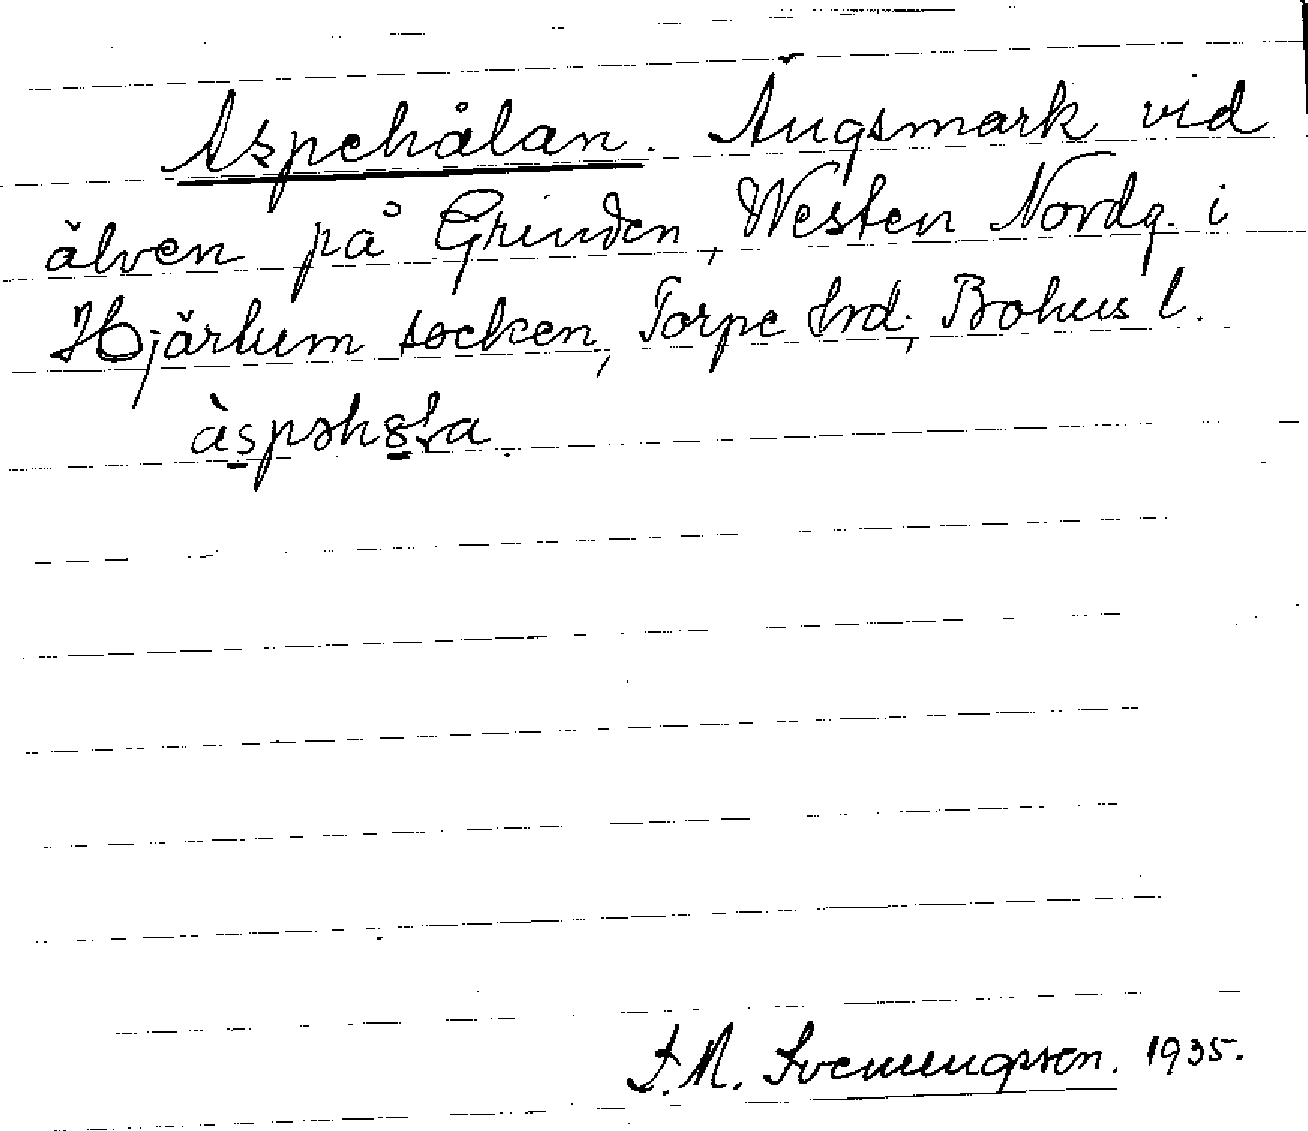 Aspehålan. Ängsmark vid
älven på Grinden, Westen Nordg. i
Hjärtum socken, Torpe hrd, Bohus l.
àspəh8ɫa
J. M. Svenungsson. 1935.